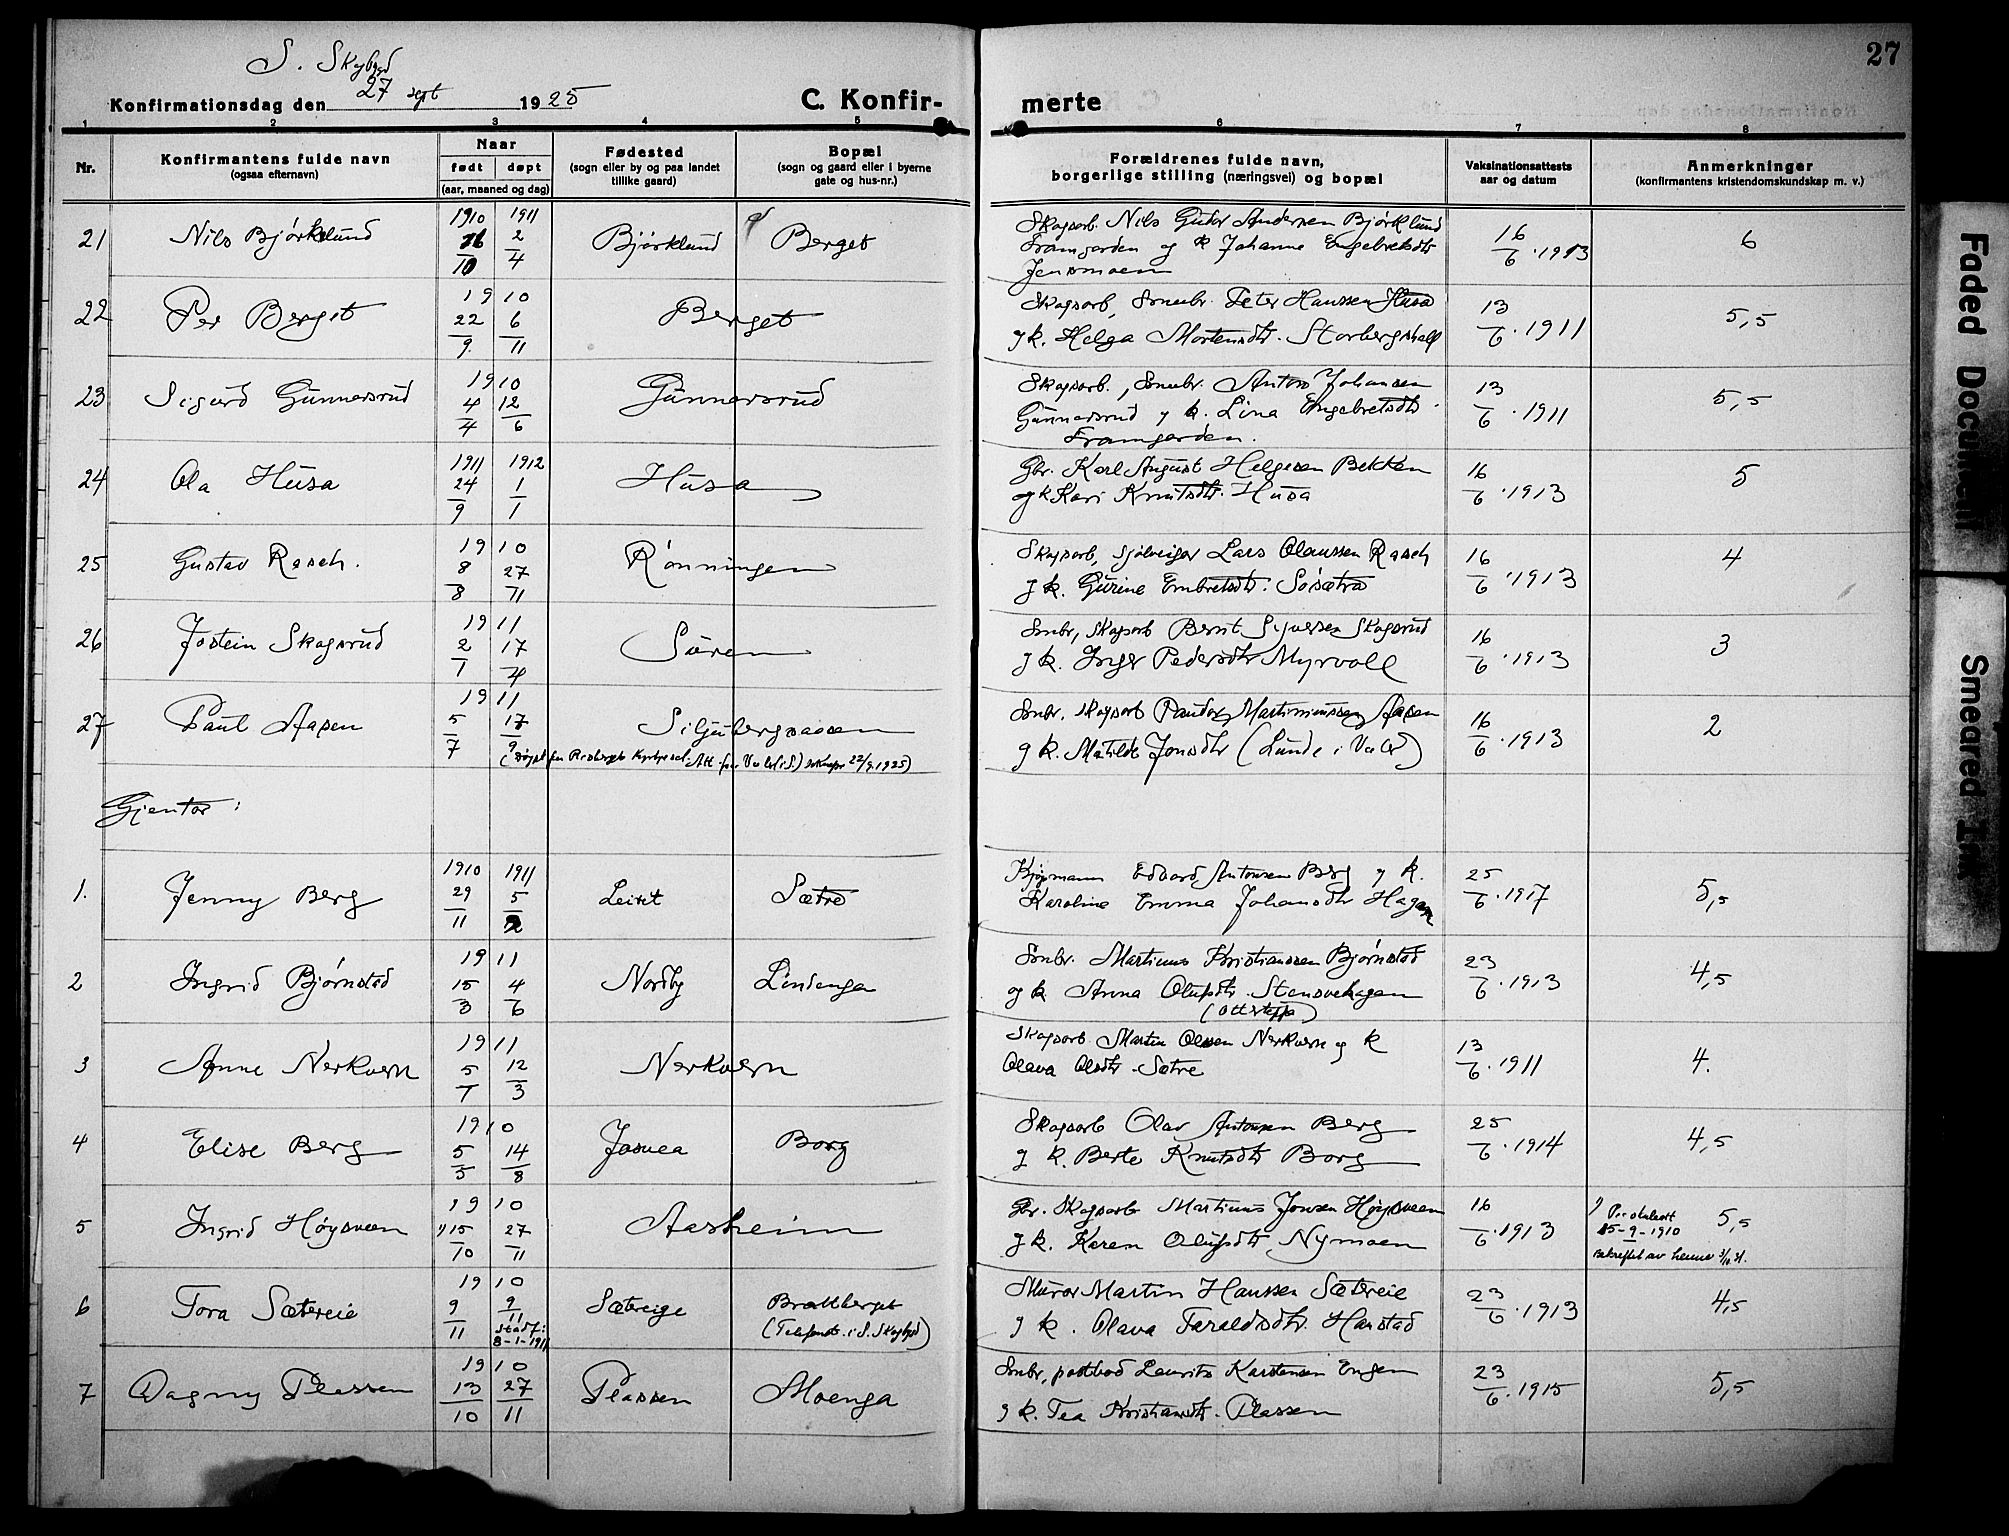 27
S. Skybygd
Konfirmationsdag den 27 sept 1925
C. Konfir- merte
1 2 3 4 5 6 7 8
Nr.
Konfirmantens fulde navn
(ogsaa efternavn)
Naar
født døpt
(aar, maaned og dag)
Fødested
(sogn eller by og paa landet
tillike gaard)
Bopæl
(sogn og gaard eller i byerne
gate og hus-nr.)
Forældrenes fulde navn,
borgerlige stilling (næringsvei) og bopæl
Vaksinationsattests
aar og datum
Anmerkninger
(konfirmantens kristendomskundskap m. v.)
21 Nils Bjørklund 1910 16/10 1911 2/4 Bjørklund Berget
Skogsarb. Nils Andersen Bjørklund
Framgarden og k Johanne Engebretsdtr
Jensmoen
16/6 · 1913 6
22 Per Berget 1910 22/9 6/11 Berget
Skogsarb, Smbr. Peter Hanssen Husa
g k. Helga Mortensdtr. Storbergshall
13/6 · 1911 5,5
23 Sigurd Gunnersrud 1910 4/4 12/6 Gunnersrud
Skogsarb., Smbr. Anton Johansen
Gunnersrud g k. Lina Engebretsdtr.
Framgarden.
13/6 · 1911 5,5
24 Ola Husa 1911 24/9 1912 1/1 Husa
Gbr. Karl August Helgesen Bekken
og k Kari Knutsdtr. Husa
16/6 · 1913 5
25 Gustav Rasch. 1910 8/8 27/11 Rønningen
Skogsarb, sjølveigar Lars Olaussen Rasch
g k. Gurine Embretsdtr. Søisætra
16/6 · 1913 4
26 Jostein Skogsrud 1911 2/1 17/4 Suren
Smbr, Skogsarb Bernt Skogsrud
g k. Inger Pedersdtr Myrvoll
16/6 · 1913 3
27 Paul Aasen 1911 5/7 17/9 Siljubergsaasen
(døypt for kyrkjesokn. Att. fr. Vaaler i S.) 22/9.1925)
Smbr. Skogsarb Martiniussen Aasen
g k. Matilde Jonsdtr (Lunde i Valer)
16/6 · 1913 2
Gjentor:
1. Jenny Berg 1910 29/11 1911 5/2 Leiret Sætre
Kjøpmann Edvard Antonsen Berg g k.
Karoline Emma Johansdtr Hagen
25/6 · 1917 5,5
2 Ingrid Bjørnstad 1911 15/3 4/6 Nordby Lindenga
Smbr. Martinus Kristianssen Bjørnstad
og k Anna Olufsdtr. Stensvehagen
23/6 · 1913 4,5
3 Anne Nerkvern 1911 5/1 12/3 Nerkvern
Skogsarb. Martin Olssen Nerkvern g k
Olava Olsdtr. Sætre
13/6 · 1911 4.
4 Elise Berg 1910 5/5 14/8 Josnea Borg
Skogsarb Olav Antonsen Berg
g k. Berte Knutsdtr Borg
25/6 · 1914 4,5
5 Ingrid Høysveen 1910 1) 15/10 27/11 Aasheim
Gbr. Skogsarb Martinus Jonsen Høysveen
g k. Karen Olufsdtr Nymoen
16/6 · 1913 5,5
1)
15-9-1910
bekreftet av henne
6 Tora Sætereie 1910 9/11 9/11 Sætereige Brattberget
stadf. i 8-1-1911
(Telefonst. i S. Skybygd)
Murar Martin Hanssen Sætereie
g k. Olava Taraldsdtr. Harstad
23/6 · 1913 4,5
7 Dagny Plassen 1910 13/10 27/11 Plassen Moenga
Smbr, postbod Laurits Karstensen Engen
g k. Tea Kristiansdtr. Plassen
23/6 · 1915 5,5
Faded Document
Smeared Ink